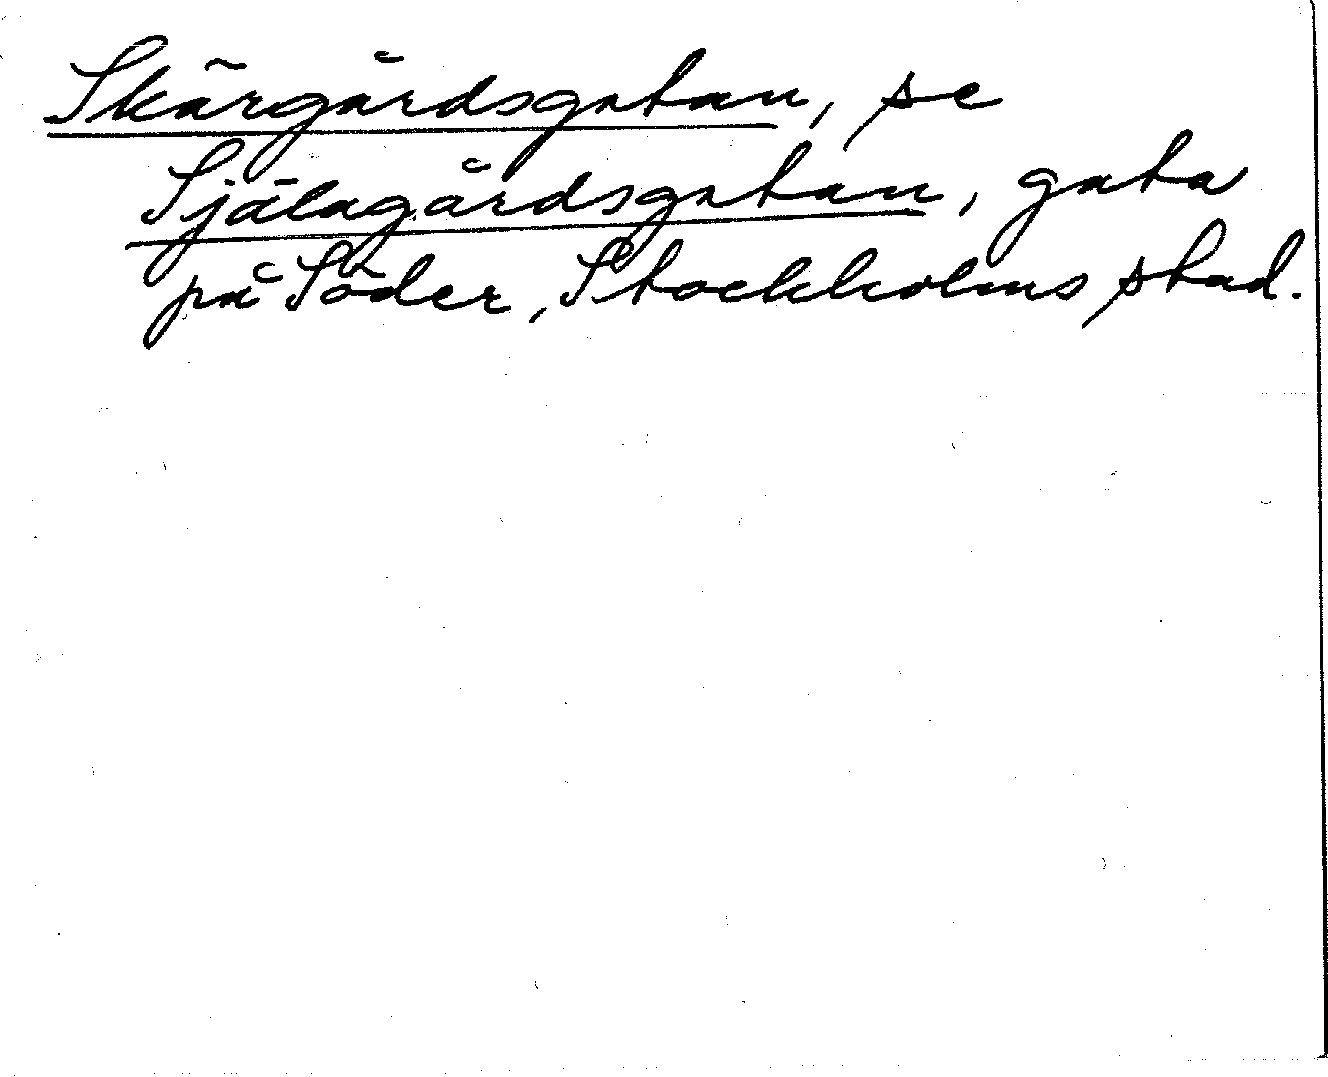 Skärgårdsgatan, se
Själagårdsgatan, gata
på Söder, Stockholms stad.